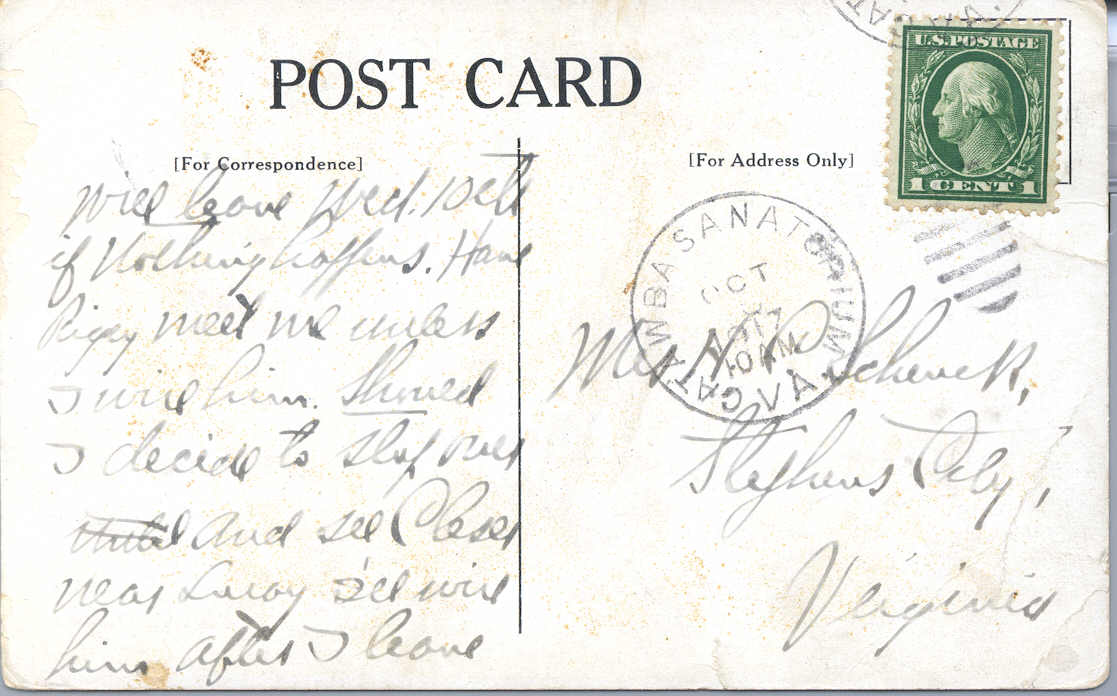 POST CARD
U.S. POSTAGE
1 CENT 1
[For Correspondence]
[For Address Only]
CATAWBA SANATORIUM, VA.
OCT
10 AM
VA.
Will leave Wed. 10th
if Nothing happens. Have
meet me unless
I wire him. Should
I decide to stop over
until and see
near Luray I'll wire
him after I leave
Mrs Schenck,
Stephens City,
Virginia